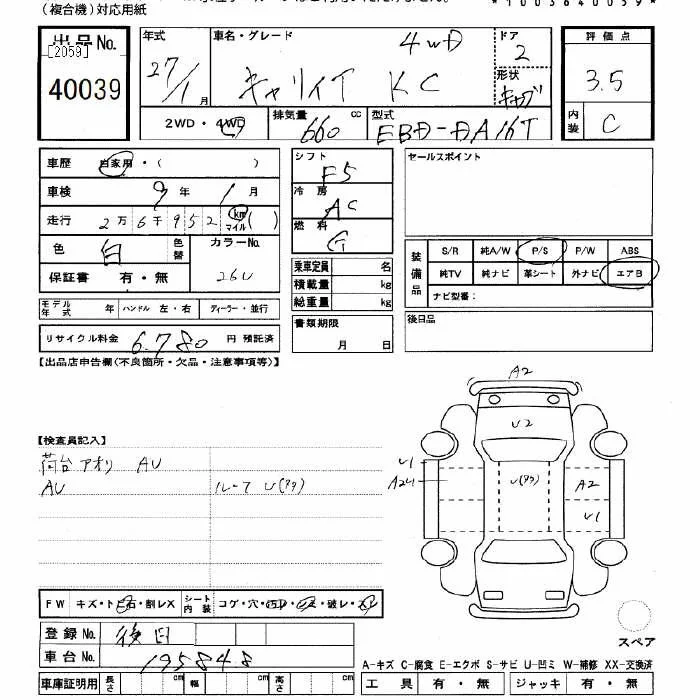 (複合機)対応用紙
出品No.
[2059]
40039
年式
27/1月
車名・グレード
4WD
キャリイT KC
ドア
2
形状
キャブ
評価点
3.5
内装
C
2WD・4WD
排気量
660 cc
型式
EBD-DA16T
車歴 自家用・( )
車検 9年 1月
走行 2万6千952 km マイル( )
色 白 色替 カラーNo.
26U
保証書 有・無
モデル年式 年 ハンドル 左・右 ディーラー・並行
リサイクル料金 6.780 円 預託済
シフト
F5
冷房
AC
燃料
G
乗車定員 名
積載量 kg
総重量 kg
書類期限
月 日
セールスポイント
装備品
S/R 純A/W P/S P/W ABS
純TV 純ナビ 革シート 外ナビ エアB
ナビ型番:
後日品
【出品店申告欄(不良箇所・欠品・注意事項等)】
【検査員記入】
荷台アオリ AU
AU
ルーフ U(タタ)
A2
U2
U1
A2U
U(タタ)
A2
U1
FW キズ・トビ石・割レX
シート内装 コゲ・穴・
破レ・
登録No. 後日
車台No. 195848
車庫証明用 長さ cm 幅 cm 高さ cm
スペア
A-キズ C-腐食 E-エクボ S-サビ U-凹ミ W-補修 XX-交換済
工具 有・無 ジャッキ 有・無